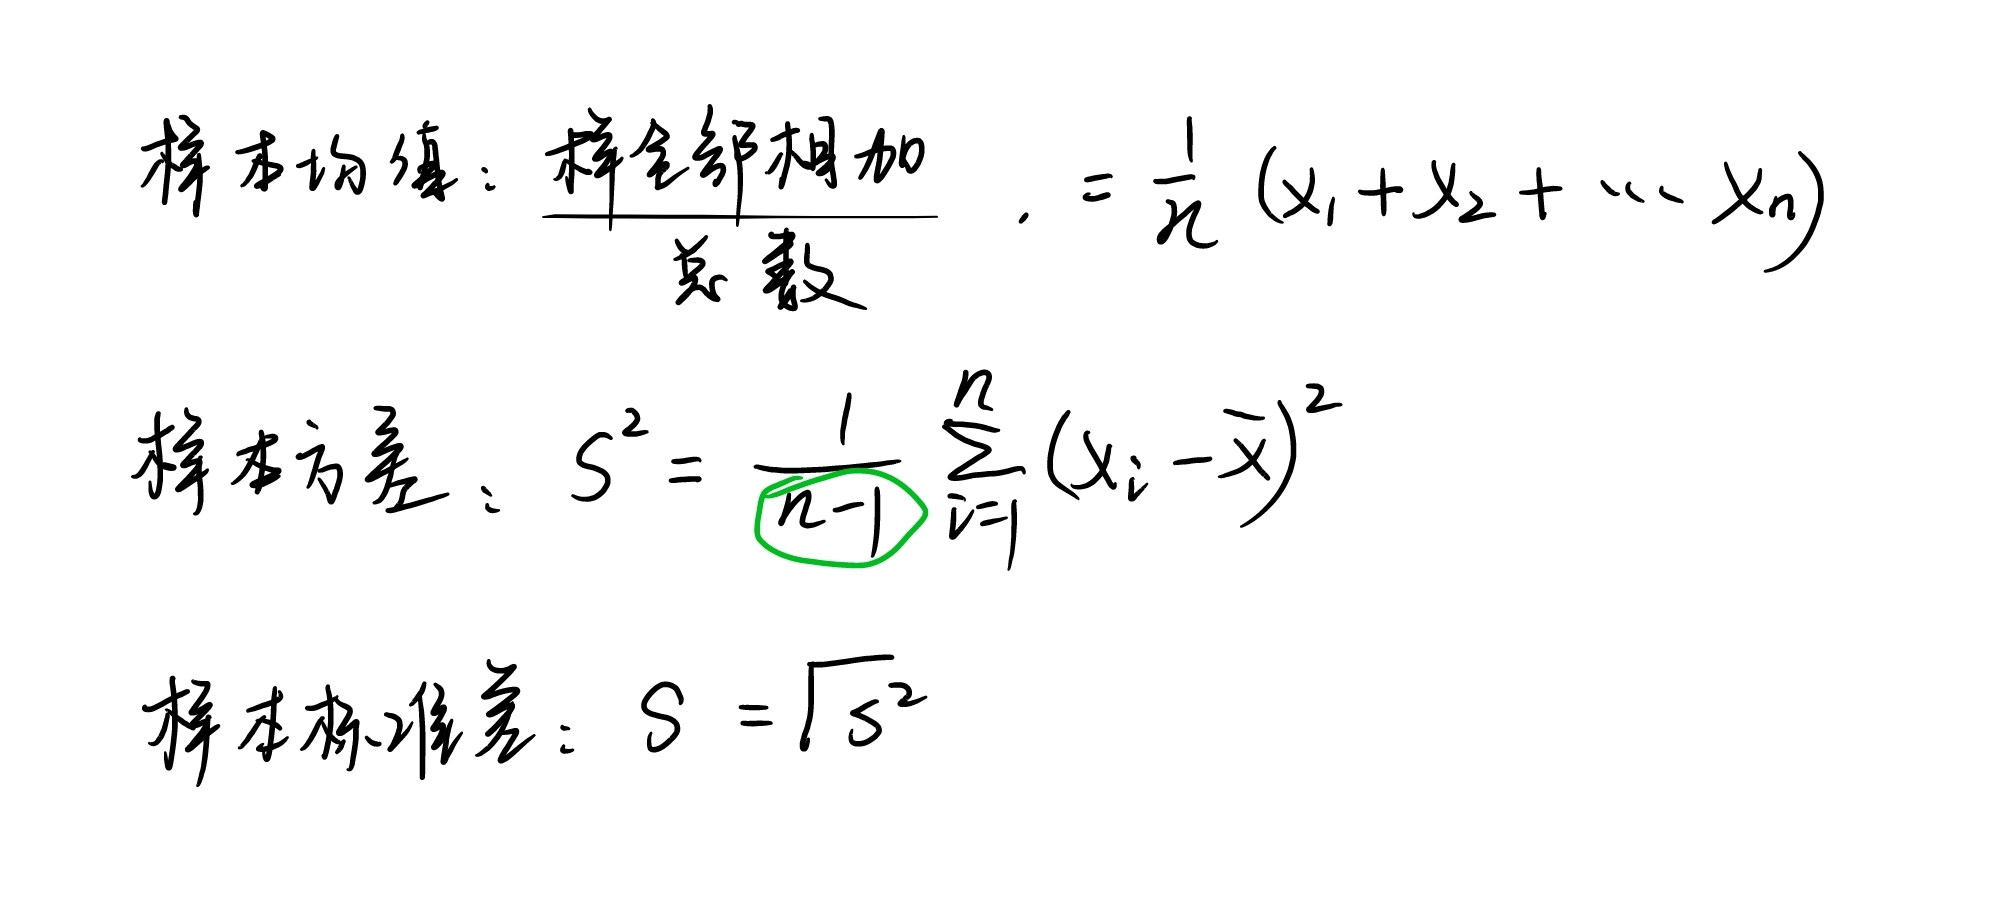 样本均值: 样全部相加 / 总数 . = 1/n (x₁ + x₂ + ... xₙ)
样本方差: S² = 1/(n-1) ∑ⁿᵢ₌₁ (xᵢ - x̄)²
样本标准差: S = √s²